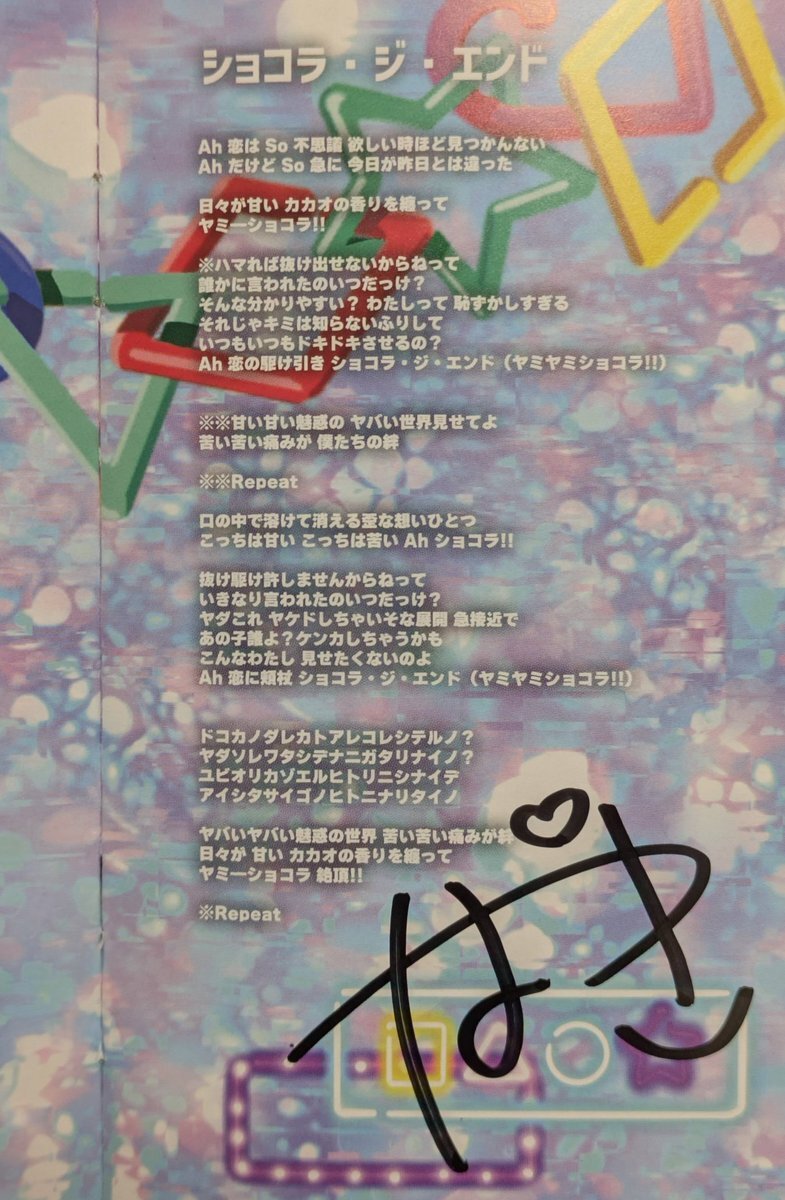 ショコラ・ジ・エンド
Ah 恋は So 不思議 欲しい時ほど見つかんない
Ah だけど So 急に 今日が昨日とは違った
日々が甘い カカオの香りを纏って
ヤミーショコラ!!
※ハマれば抜け出せないからねって
誰かに言われたのいつだっけ？
そんな分かりやすい？ わたしって 恥ずかしすぎる
それじゃキミは知らないふりして
いつもいつもドキドキさせるの？
Ah 恋の駆け引き ショコラ・ジ・エンド（ヤミヤミショコラ!!）
※※甘い甘い魅惑の ヤバい世界見せてよ
苦い苦い痛みが 僕たちの絆
※※Repeat
口の中で溶けて消える歪な想いひとつ
こっちは甘い こっちは苦い Ah ショコラ!!
抜け駆け許しませんからねって
いきなり言われたのいつだっけ？
ヤダこれ ヤケドしちゃいそな展開 急接近で
あの子誰よ？ケンカしちゃうかも
こんなわたし 見せたくないのよ
Ah 恋に頬杖 ショコラ・ジ・エンド（ヤミヤミショコラ!!）
ドコカノダレカトアレコレシテルノ？
ヤダソレワタシデナニガタリナイノ？
ユビオリカゾエルヒトリニシナイデ
アイシタサイゴノヒトニナリタイノ
ヤバいヤバい魅惑の世界 苦い苦い痛みが絆
日々が 甘い カカオの香りを纏って
ヤミーショコラ 絶頂!!
※Repeat